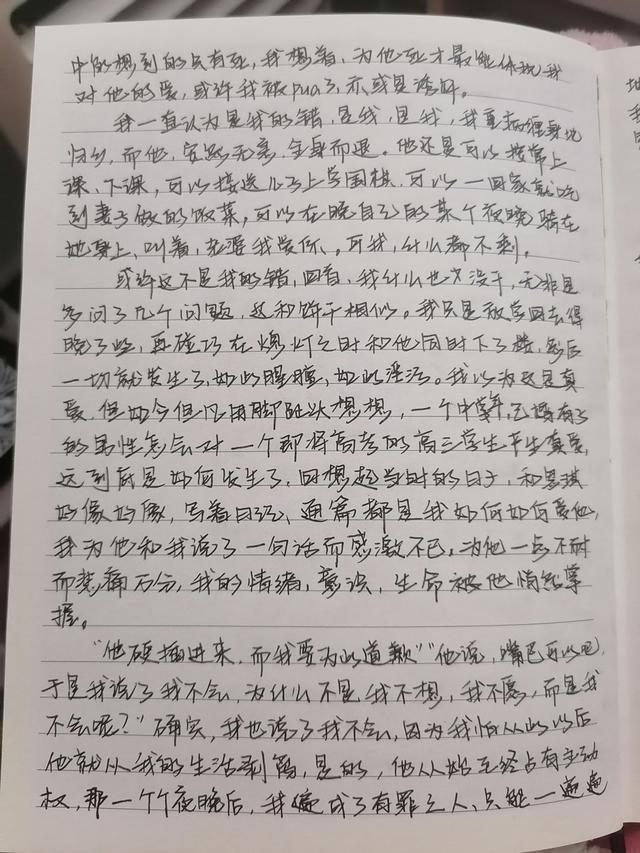 中的想到的只有死，我想着，为他死才最能体现我
对他的爱，或许我被pua了，亦或是洛好。
我一直认为是我的错，是我，是我，我重病缠身地
归乡，而他，安然无恙，全身而退。他还是可以按常上
课、下课，可以接送儿子上学围棋，可以一回家就吃
到妻子做的饭菜，可以在晚自习的某个夜晚骑在
她身上，叫着，老婆我爱你。可我，什么都不剩。
或许这不是我的错，回首，我什么也没干，无非是
多问了几个问题，这和饼干相似。我只是放学回去得
晚了些，再碰巧在熄灯之时和他同时下了楼，然后
一切就发生了，如此腥膻，如此淫污。我以为这是真
爱，但如今但凡用脚趾头想想，一个中年已婚有子
的男性怎会对一个即将高考的高三学生产生真爱，
这到底是如何发生了，回想起当时的日子，和思琪
好像好像，写着日记、通篇都是我如何如何爱他，
我为他和我说了一句话而感激不已，为他一点不耐
而悲痛万分，我的情绪，意识，生命被他悄然掌
握。
“他硬插进来，而我要为此道歉”“他说，嘴巴可以吧，
于是我说了我不会，为什么不是我不想，我不愿，而是我
不会呢？”确实，我也说了我不会，因为我怕从此以后
他就从我的生活剥离，是的，他从始至终占有主动
权，那一个个夜晚后，我便成了有罪之人，只能一遍遍